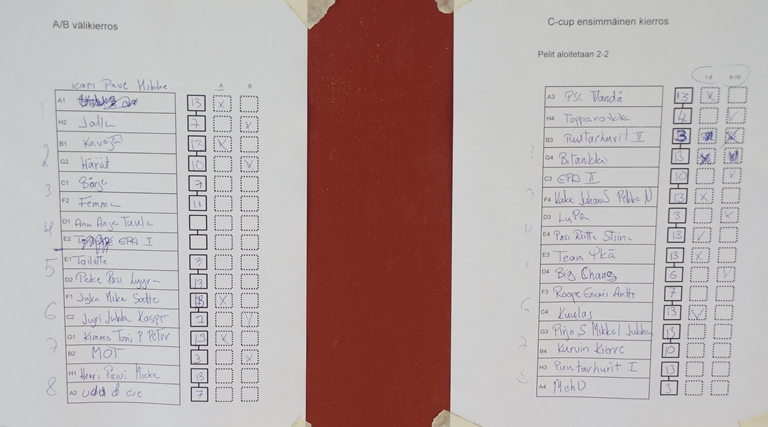 A/B välikierros
Kari Pave Mikke
A B
A1 13 x
H2 Jallu 7 v
1
B1 13 x
G2 Härät 10 x
2
C1 Börje 7
F2 Femma 13
3
D1 Anu Anja Tuula
E2 EPA I
4
E1 Tailotte
D2 Peke Pasi Lyyra 13
5
F1 Jyke Mika Sutte 13 x
C2 Jyri Jukka Kasper 7 v
6
G1 Kimmo Toni P Peter 13 x
B2 MOT 3 x
7
H1 Henri Päivi Micke 13
A2 7
8
C-cup ensimmäinen kierros
Pelit aloitetaan 2-2
1-8 9-16
A3 PSC Vandå 13 x
H4 Topparoikka 4 v
B3 Puutarhurit II 3 x
G4 Bitankka 13 x
C3 EPA II 10 v
F4 Kake JuhaniS Pekka N 13 x
D3 LuPa 3 x
E4 Pasi Riitta Stiina 13 v
E3 Team Ykä 13 x
D4 Big Chang 6 v
F3 Roope Emmi Antti 7
C4 Kuulas 13 v
G3 Pirjo S Mikko L Jukka 13
B4 Kurvin Kierre 10
H3 Puutarhurit I 13
A4 MehU 3